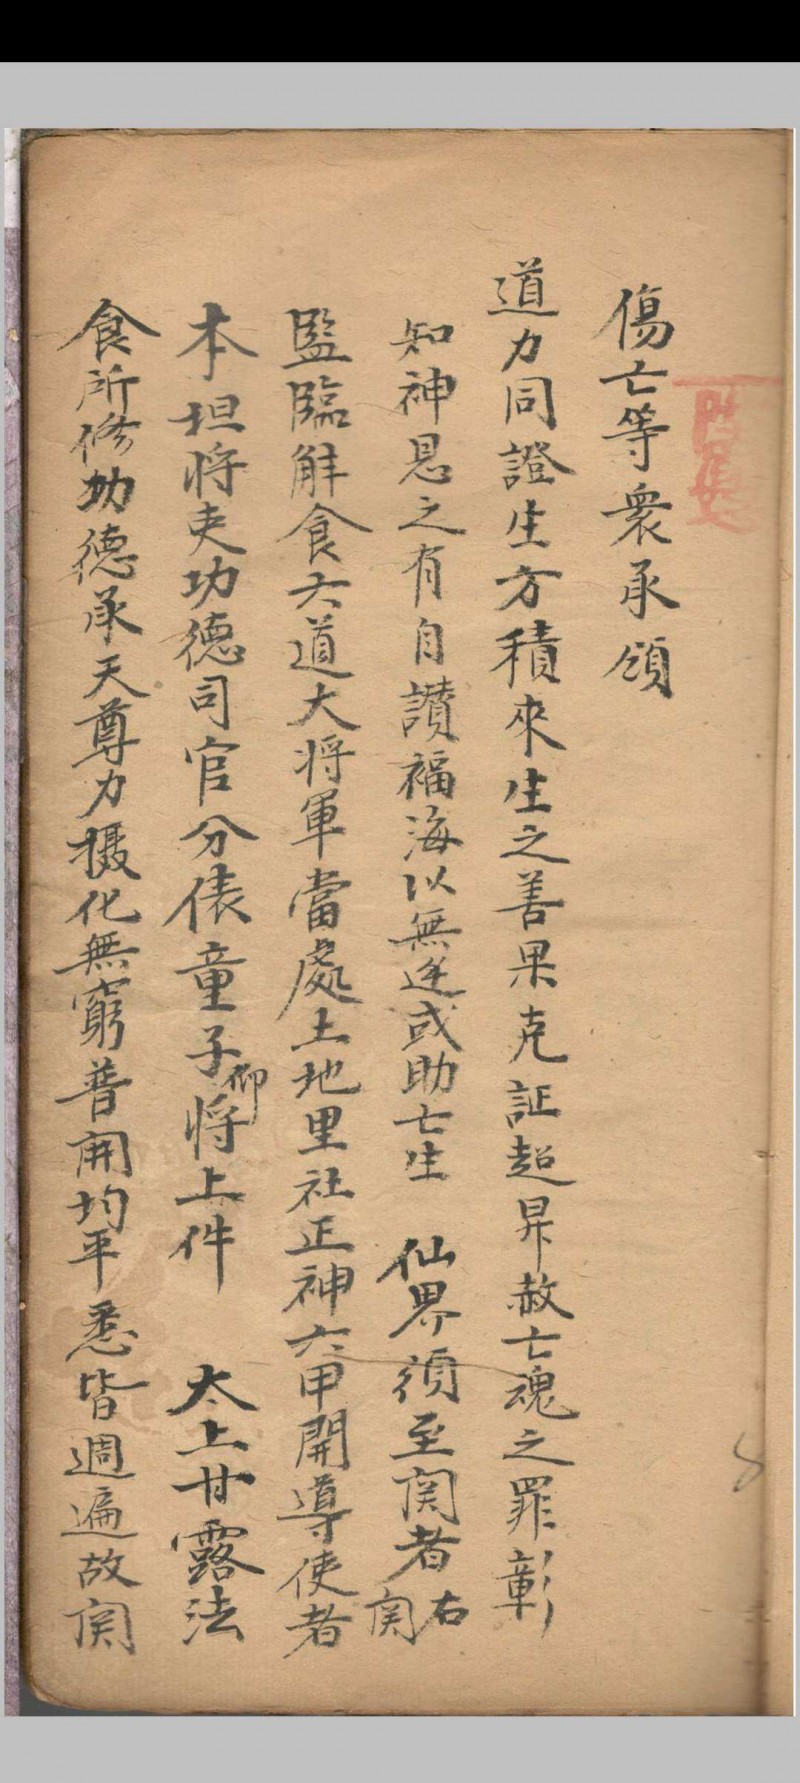 傷亡等衆承頒
道力同證生方積來生之善果克証超昇赦亡魂之罪彰
知神恩之有自讃福海以無迋或助亡生 仙界須至関者右関
監臨解食大道大将軍當處土地里社正神六甲開導使者
本坦将吏功德司官分俵童子仰将上件 太上甘露法
食所修功德承天尊力摄化無窮普開均平悉皆週遍故関